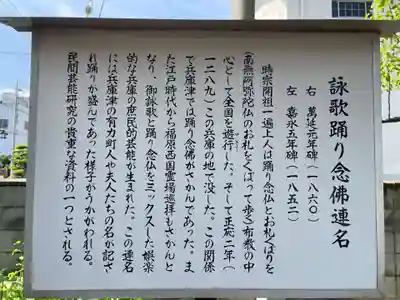 詠歌踊り念佛連名
右 萬延元年碑(一八六〇)
左 嘉永五年碑(一八五二)
時宗開祖一遍上人は踊り念仏とお札くばりを
(南無阿弥陀仏のお札をくばって歩く)布教の中
心として全国を遊行した。そして正応二年(
一二八九)この兵庫の地で没した。この関係
で兵庫津では踊り念佛がさかんであった。ま
た江戸時代から福原西国霊場巡拝もさかんと
なり、御詠歌と踊り念仏をミックスした娯楽
的な兵庫の庶民的芸能が生まれた。この連名
には兵庫津の有力町人や夫人たちの名が記さ
れ踊りが盛んであった様子がうかがわれる。
民間芸能研究の貴重な資料の一つとされる。